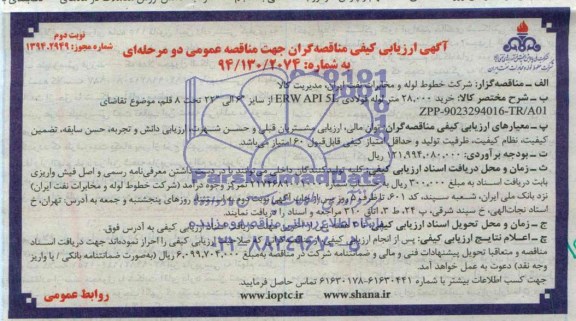 نوبت دوم
شماره مجوز: ۱۳۹۴.۲۹۴۹
آگهی ارزیابی کیفی مناقصه‌گران جهت مناقصه عمومی دو مرحله‌ای
به شماره: ۹۴/۱۳۰/۲۰۷۴
الف - مناقصه‌گزار: شرکت خطوط لوله و مخابرات نفت ایران، مدیریت کالا
ب - شرح مختصر کالا: خرید ۲۸،۰۰۰ متر لوله فولادی ERW API 5L از سایز الی ۲۲" تحت ۸ قلم، موضوع تقاضای
ZPP-9023294016-TR/A01
پ - معیارهای ارزیابی کیفی مناقصه‌گران: توان مالی، ارزیابی مشتریان قبلی و حسن شهرت، ارزیابی دانش و تجربه، حسن سابقه، تضمین
کیفیت، نظام کیفیت، ظرفیت تولید و حداقل امتیاز کیفی قابل‌قبول ۶۰ امتیاز می‌باشد.
ت - بودجه برآوردی: ۱۲۱،۹۹۴،۰۸۰،۰۰۰ ریال
ث - زمان و محل دریافت اسناد ارزیابی کیفی: کلیه تولیدکنندگان داخلی می‌توانند با در دست داشتن معرفی‌نامه رسمی و اصل فیش واریزی
بابت دریافت اسناد به مبلغ ۳۰۰،۰۰۰ ریال به تمرکز وجوه درآمد (شرکت خطوط لوله و مخابرات نفت ایران)
نزد بانک ملی ایران، شعبه سپند، کد ۶۰۱ از روز پنجشنبه و جمعه به آدرس: تهران، خ
استاد نجات‌الهی، خ سپند شرقی، پ ۲۴، ط ۳، اتاق ۳۱۰ مراجعه و اسناد را دریافت نمایند.
ج - زمان و محل تحویل اسناد ارزیابی کیفی: اسناد ارزیابی کیفی به آدرس فوق.
چ - اعلام نتایج ارزیابی کیفی: پس از انجام ارزیابی کیفی، صلاحیت ارزیابی کیفی را احراز نموده‌اند جهت دریافت اسناد
مناقصه و متعاقبا تحویل پیشنهادات فنی و مالی و ضمانتنامه شرکت در مناقصه به‌مبلغ ۶،۰۹۹،۷۰۴،۰۰۰ ریال (به‌صورت ضمانتنامه بانکی / یا واریز
وجه نقد) دعوت به عمل خواهد آمد.
جهت کسب اطلاعات بیشتر با شماره ۶۱۶۳۰۴۴۱-۶۱۶۳۰۱۷۸ تماس حاصل فرمایید.
www.shana.ir www.ioptc.ir
روابط عمومی
ParsNamadData
پایگاه اطلاع رسانی مناقصه و مزایده